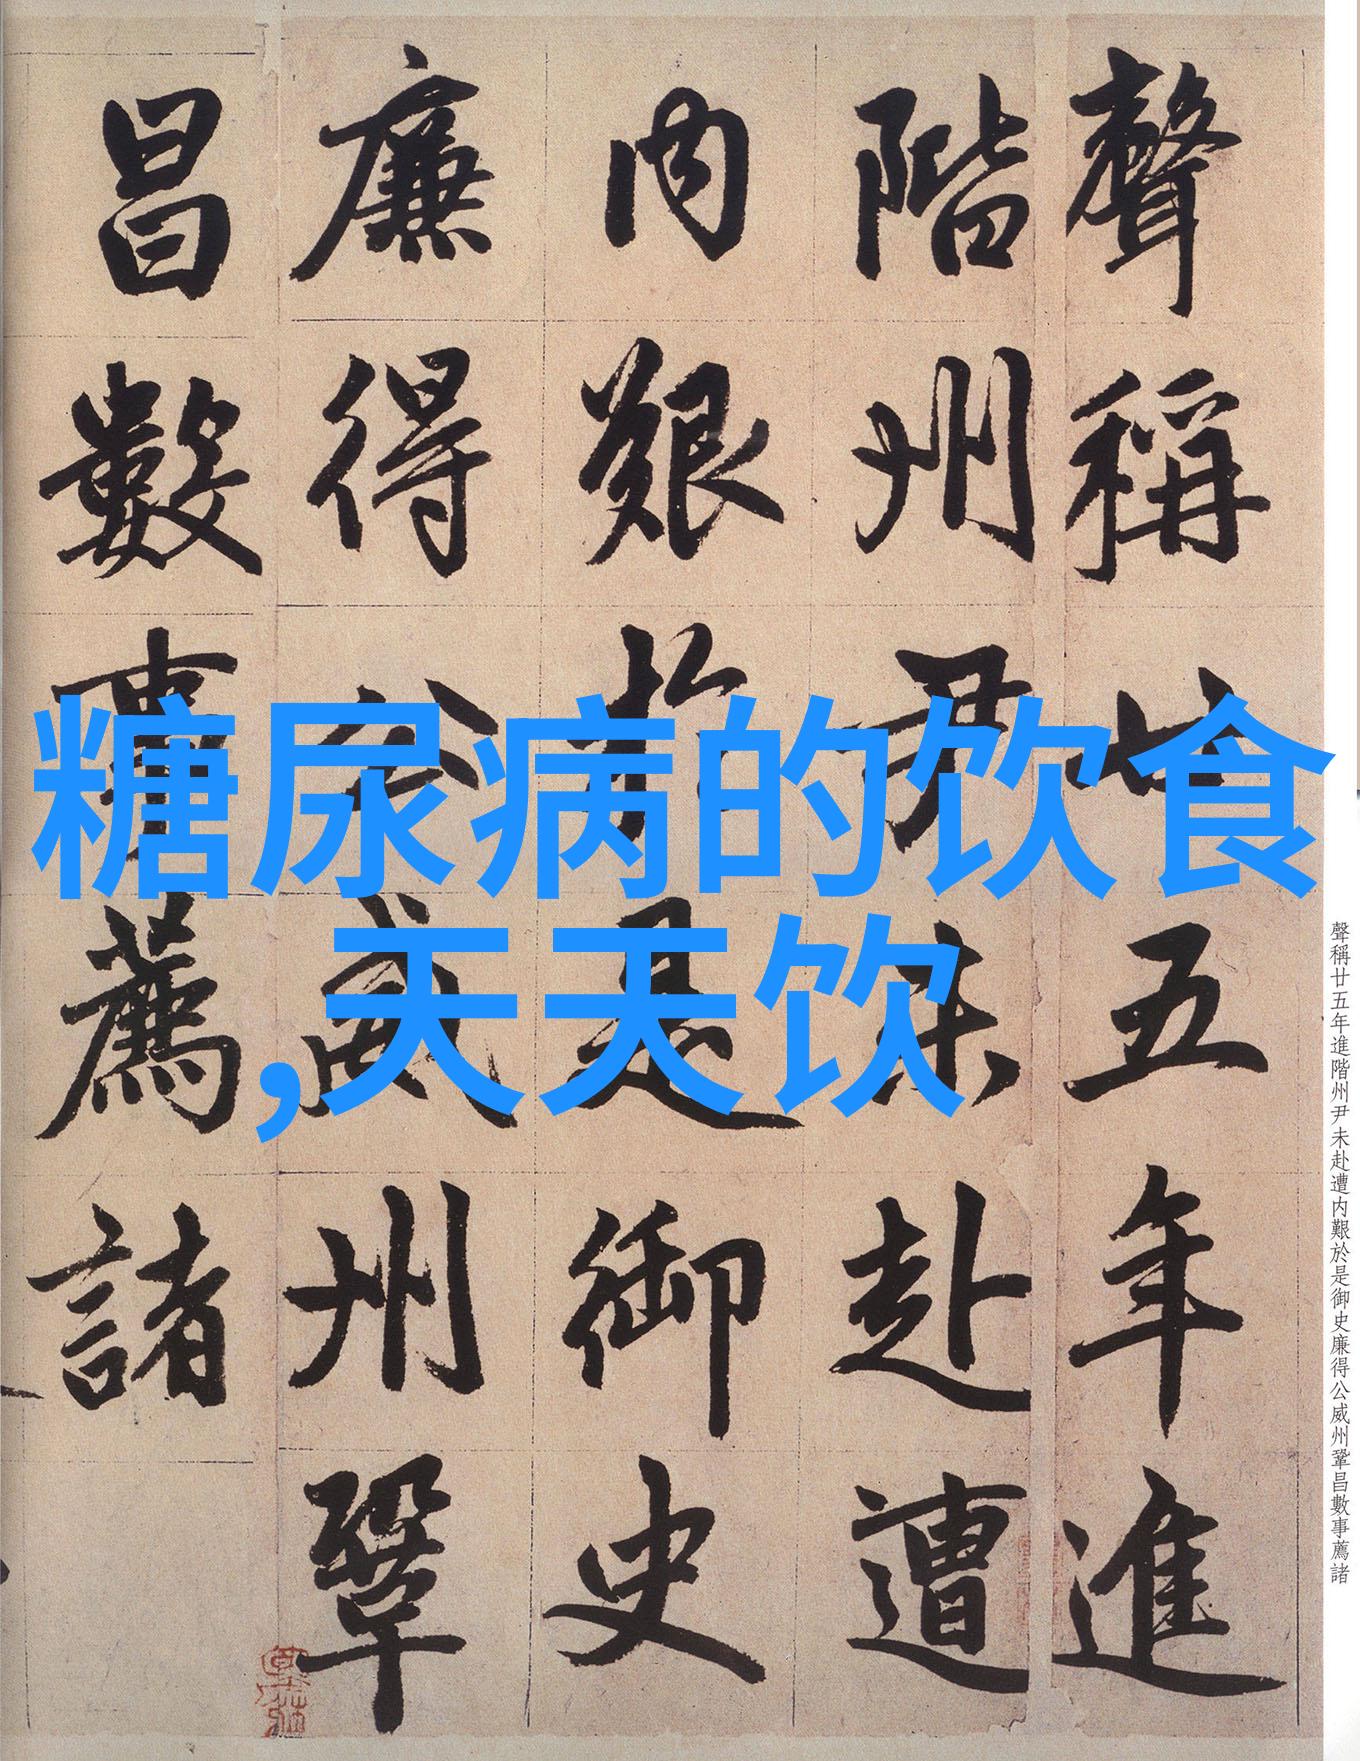 糖尿病的饮食
,天天饮
聲稱廿五年進
階州尹未赴遭
内艱於是御史
廉得公威州鞏
昌數事薦諸
聲稱廿五年進階州尹未赴遭内艱於是御史廉得公威州鞏昌數事薦諸